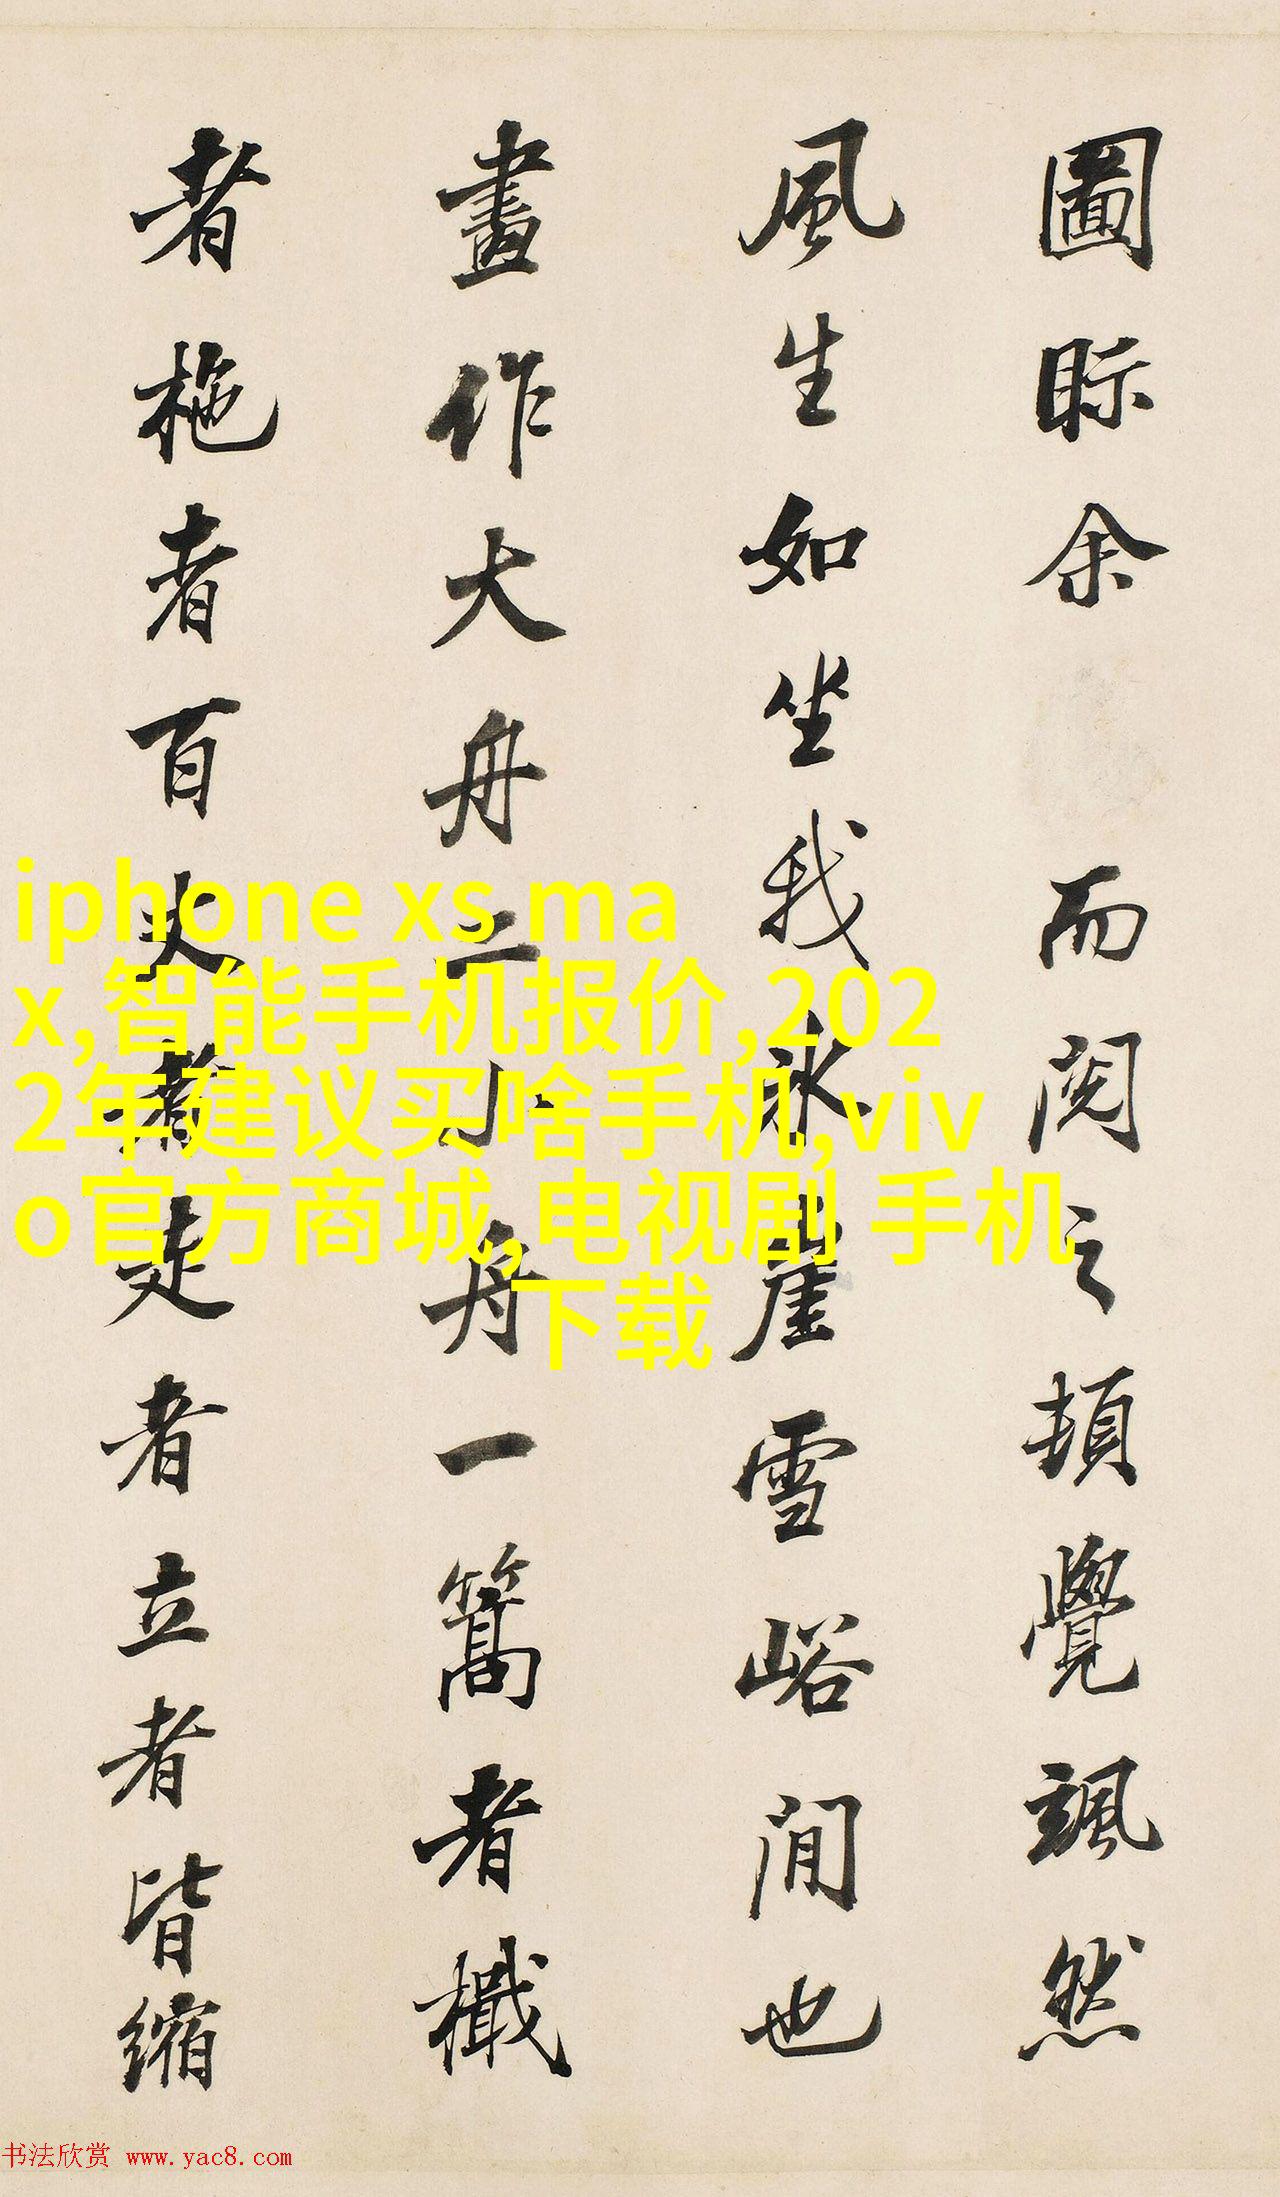 圖眎余
而閱之頓覺颯然
風生如坐我冰崖雪峪間也
畫作大舟二小舟一篙者檝
者柂者百丈者走者立者皆縮
iphone xs ma
x,智能手机报价,202
2年建议买啥手机,viv
o官方商城,电视剧 手机
下载
书法欣赏 www.yac8.com